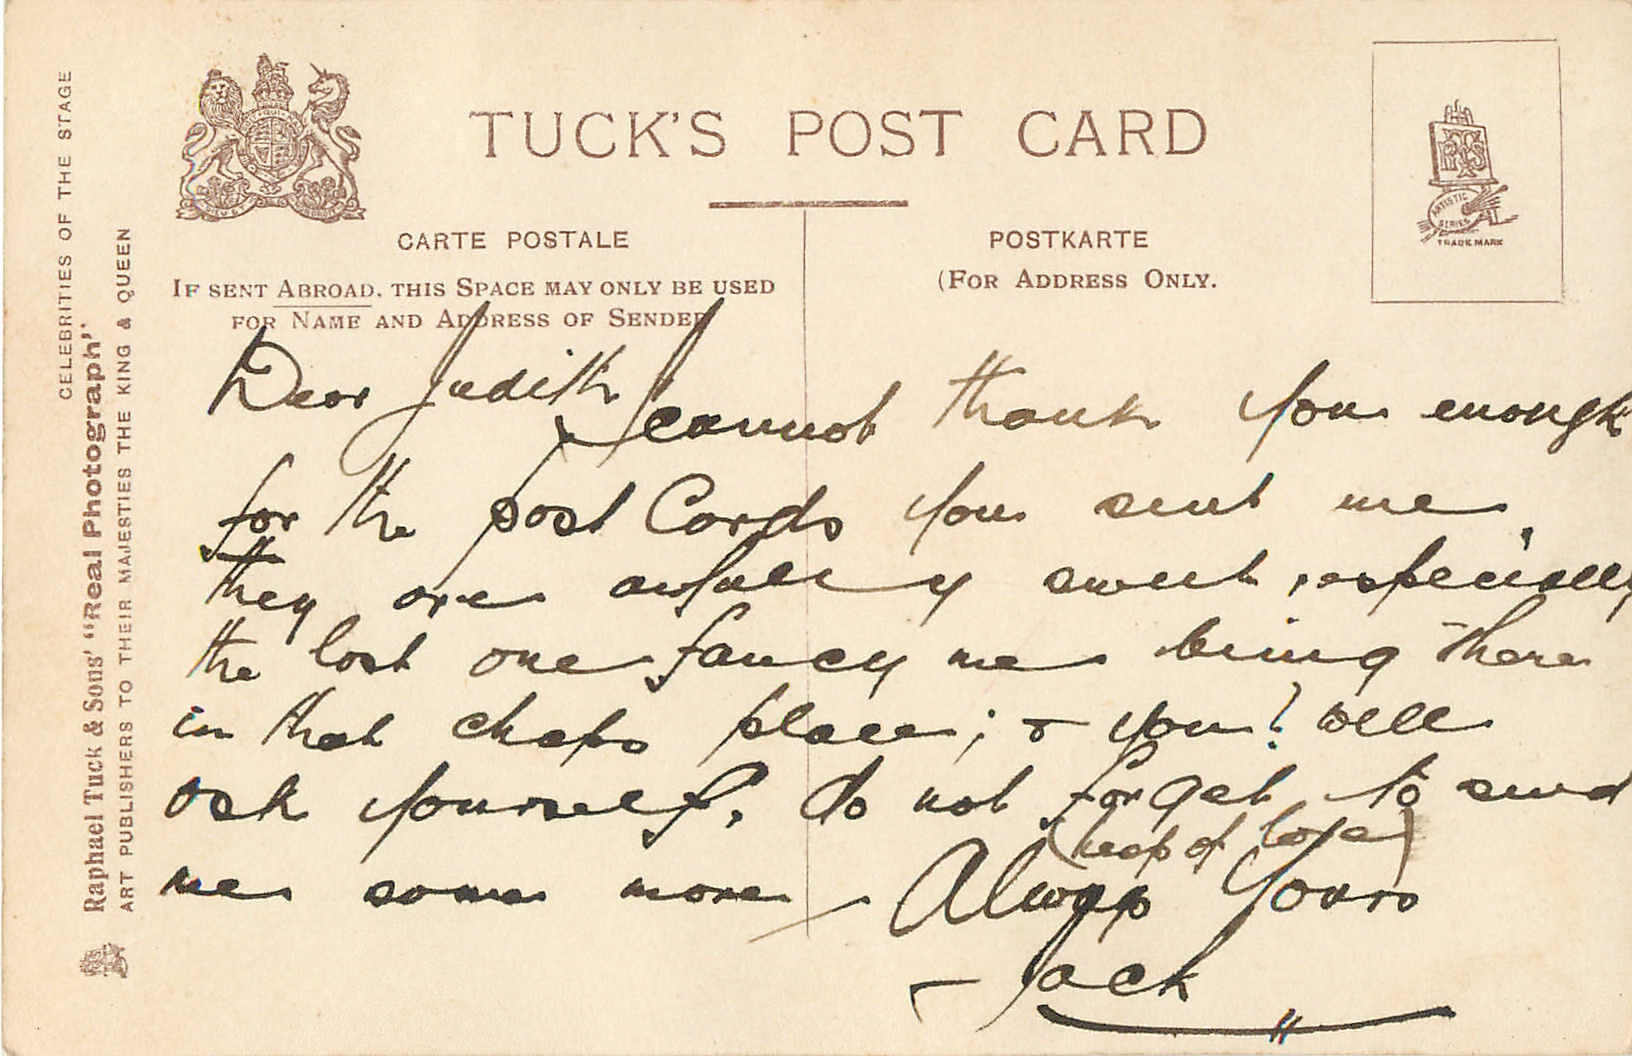 TUCK'S POST CARD
CARTE POSTALE
POSTKARTE
IF SENT ABROAD, THIS SPACE MAY ONLY BE USED
FOR NAME AND ADDRESS OF SENDER
(FOR ADDRESS ONLY.
RTS
ARTISTIC
SERIES
TRADE MARK
CELEBRITIES OF THE STAGE
Raphael Tuck & Sons' "Real Photograph"
ART PUBLISHERS TO THEIR MAJESTIES THE KING & QUEEN
Dear Judith
I cannot thank you enough
for the post Cards you sent me,
they are awfully sweet, especially
the last one fancy me being there
in that chaps place; & you? well
ask yourself. do not forget to send
(heap of love)
me some more – Always Yours
– Jack